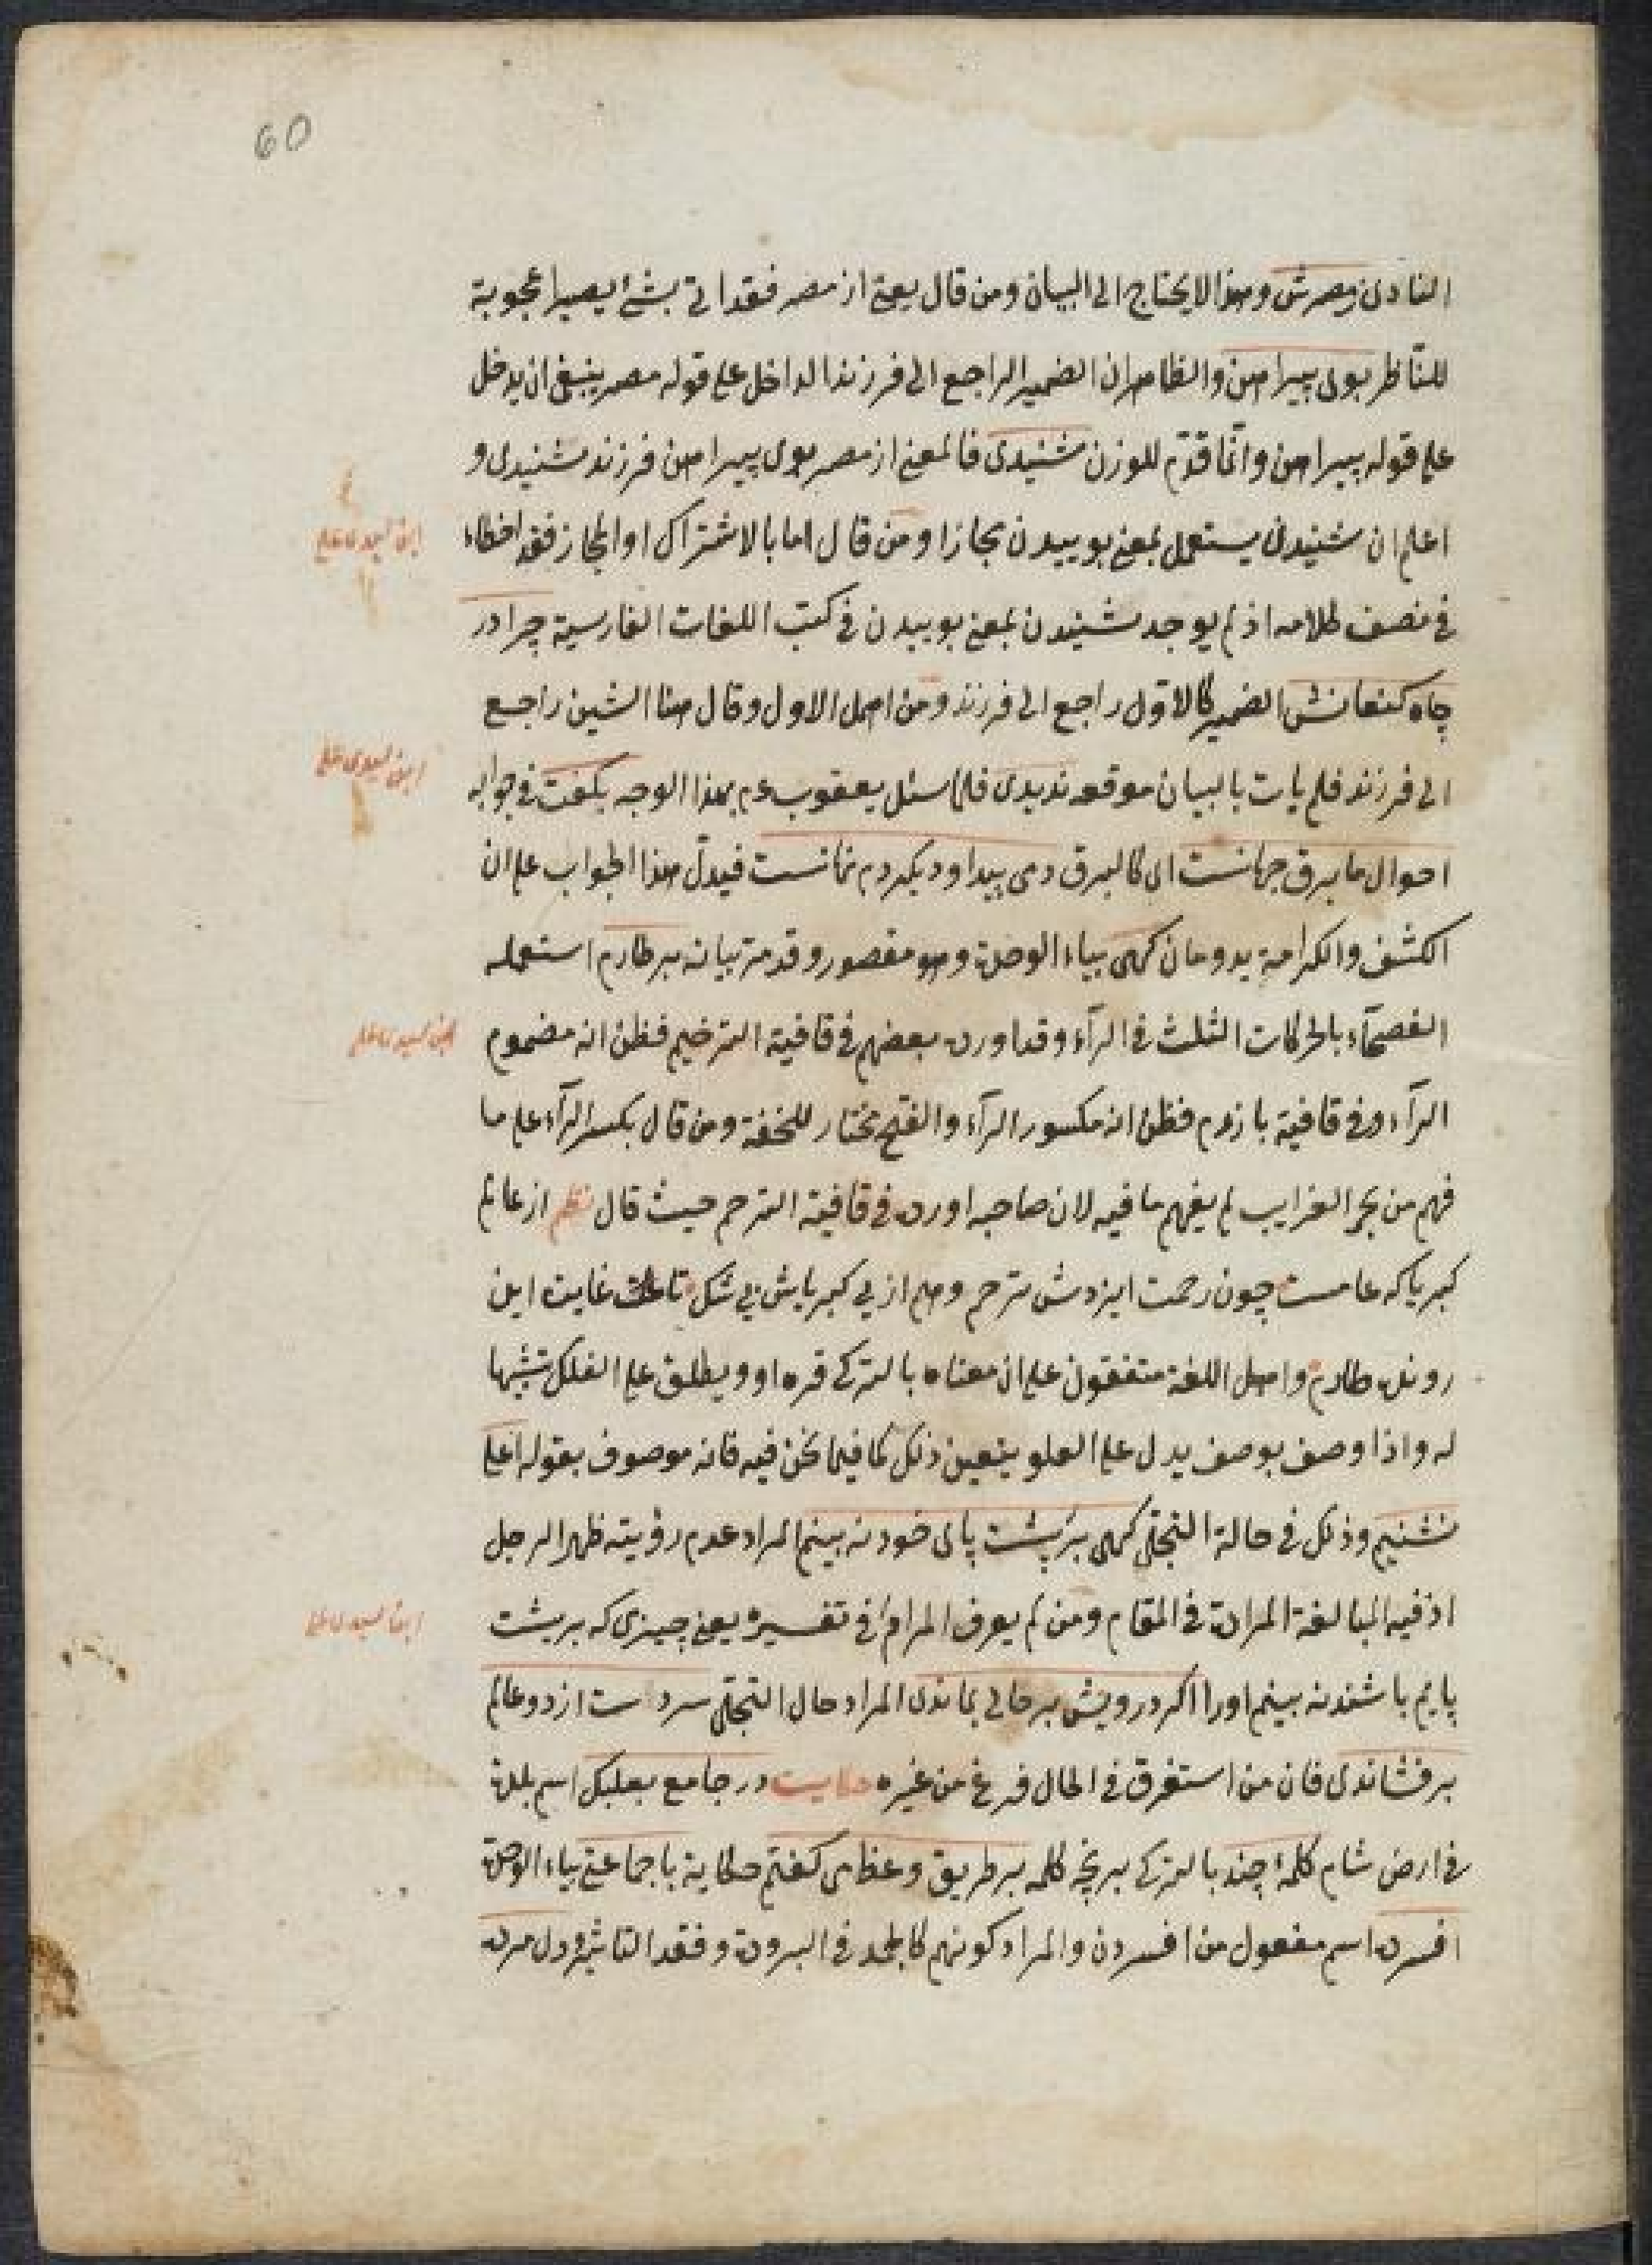 60
النادى زمصرش وهذا لا يحتاج الى البيان ومن قال يعنى از مصر فقد اتى بشئ يصير اعجوبة
للناظر بوى پيراهن والظاهر ان الضمير الراجع الى فرزند الداخل على قوله مصر ينبغى ان يدخل
على قوله پيراهن وانما قدّم للوزن شنيدى فالمعنى از مصر بوى پيراهن فرزند شنيدى و
اعلم ان شنيدن يستعمل بمعنى بوييدن مجازا ومن قال اما بالاشتراك او المجاز فقد اخطاء
ابن السيد على
فى نصف كلامه اذ لم يوجد شنيدن بمعنى بوييدن فى كتب اللغات الفارسية چرا در
چاه كنعانش الضمير كالاوّل راجع الى فرزند ومن اهمل الاول وقال هنا الشين راجع
الى فرزند فلم يات بالبيان موقعه نديدى فلما سئل يعقوب عم بهذا الوجه بكفت فى جوابه
ابن السيد على
احوال ما برق جهانست اى كالبرق دمى پيدا و ديكر دم نهانست فيدلّ هذا الجواب على ان
الكشف والكرامة يدومان كهى بياء الوحدة وهو مقصور وقد مر بيانه بر طارم استعمله
الفصحآء بالحركات الثلث فى الرآء وقد اورده بعضهم فى قافية الترخيم فظن انه مضموم
ابن السيد على
الرآء وفى قافية بازدم فظن انه مكسور الرآء والفتح مختار للخفة ومن قال بكسر الرآء على ما
فهم من بحر الغرايب لم يفهم ما فيه لان صاحبه اورده فى قافية الترحم حيث قال نظم از عالم
كبريا كه عامست چون رحمت ايزدش ترحم وهم از پى كبريايش بى شك غايت اين
رونده طارم واهل اللغة متفقون على ان معناه بالتركى قره او ويطلق على الفلك تشبيها
له واذا وصف بوصف يدل على العلو يتعين ذلك كما فيما نحن فيه فانه موصوف بقوله اعلى
نشنيم وذلك فى حالة التجلّى كهى بر پشت پاى خود نه بينم المراد عدم رؤيته ظهر الرجل
اذ فيه المبالغة المرادة فى المقام ومن لم يعرف المرام فى تفسيره يعنى چيزى كه بر پشت
ابن السيد على
پايم باشند نه بينم او را اكر درويش بر حالى بماندى المراد حال التجلّى سر دست از دو عالم
بر فشاندى فان من استغرق فى الحال فرغ من غيره حكايت در جامع بعلبك اسم بلدة
فى ارض شام كلمۀ چند بالتركى بر نچه كلمه بر طريق وعظ مى كفتم حكاية با جماعتى بياء الوحدة
افسرده اسم مفعول من افسردن والمراد كونهم كالجمد فى البرودة وفقد التاثير و دل مرده